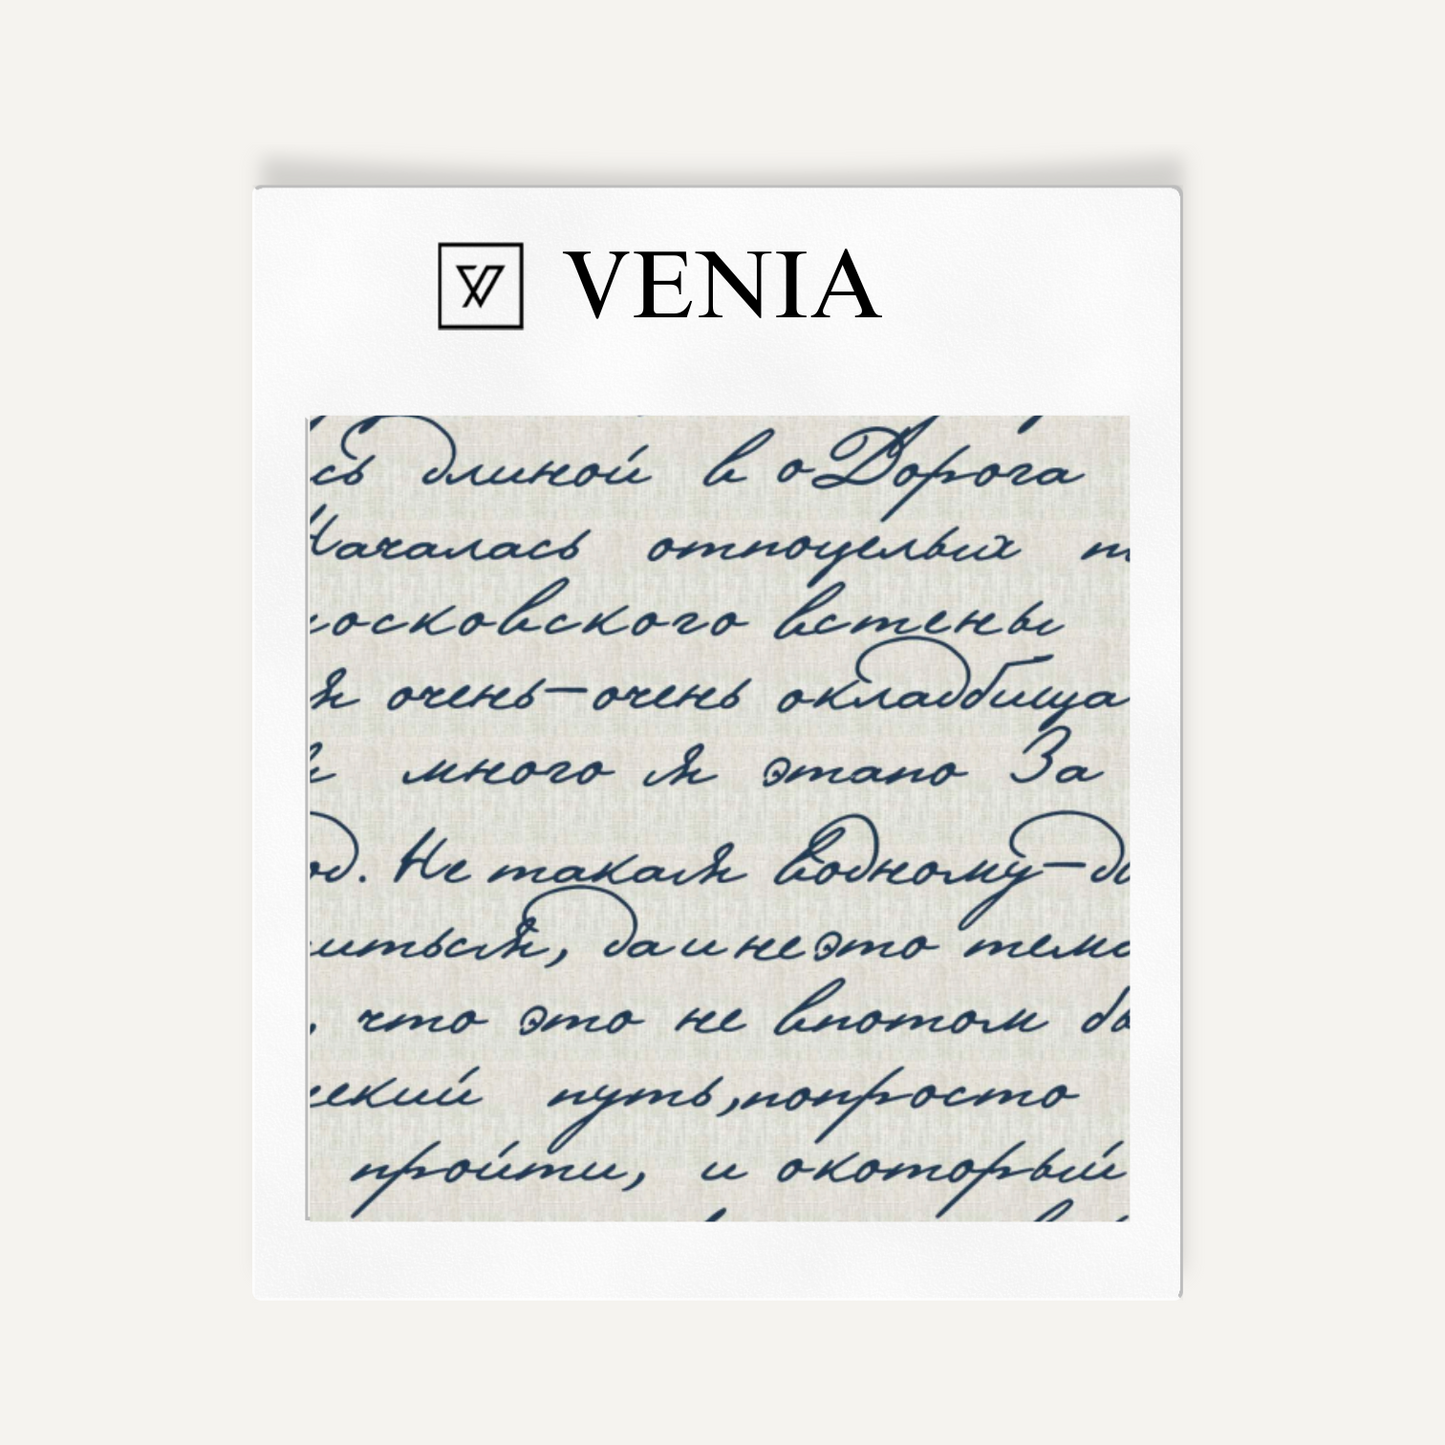 VENIA
сь длиной в о Дорога
Началась отпоцелых т
московского встены
я очень-очень окладбища
много я этапо За
од. Не такая водному-до
иться, да и не это тема
, что это не впотом бы
ский путь, попросто
пройти, и окоторый